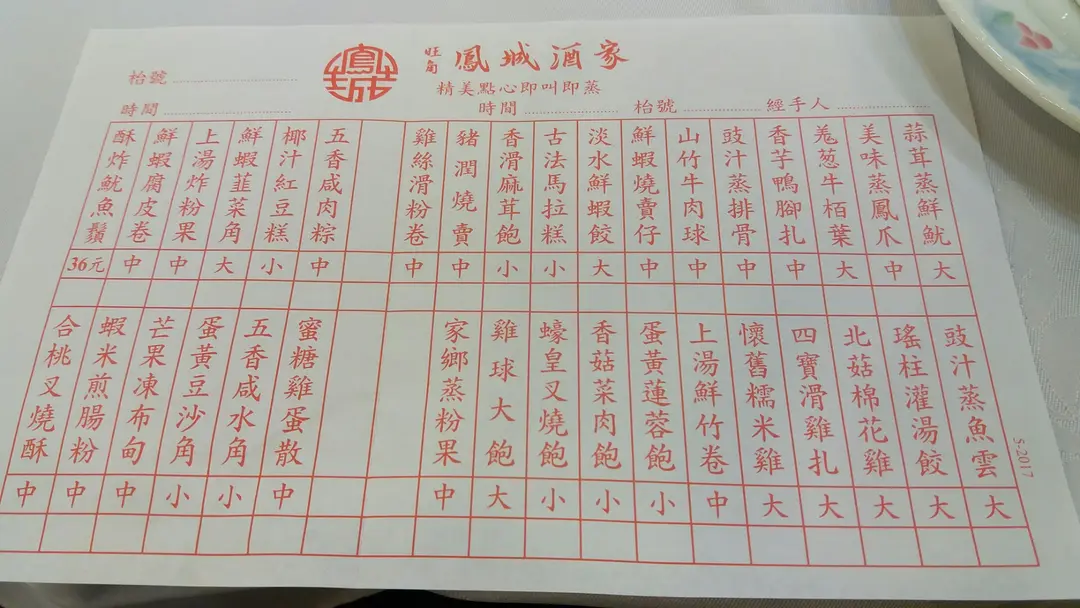 旺角 鳳城酒家
精美點心即叫即蒸
枱號
時間
時間 枱號 經手人
蒜茸蒸鮮魷 大
美味蒸鳳爪 中
羗葱牛栢葉 大
香芋鴨腳扎 中
豉汁蒸排骨 中
山竹牛肉球 中
鮮蝦燒賣仔 中
淡水鮮蝦餃 大
古法馬拉糕 小
香滑麻茸飽 小
豬潤燒賣 中
雞絲滑粉卷 中
五香咸肉粽 中
椰汁紅豆糕 小
鮮蝦韮菜角 大
上湯炸粉果 中
鮮蝦腐皮卷 中
酥炸魷魚鬚 36元
豉汁蒸魚雲 大
瑤柱灌湯餃 大
北菇棉花雞 大
四寶滑雞扎 大
懷舊糯米雞 大
上湯鮮竹卷 中
蛋黃蓮蓉飽 小
香菇菜肉飽 小
蠔皇叉燒飽 小
雞球大飽 大
家鄉蒸粉果 中
蜜糖雞蛋散 中
五香咸水角 小
蛋黃豆沙角 小
芒果凍布甸 中
蝦米煎腸粉 中
合桃叉燒酥 中
5-2017